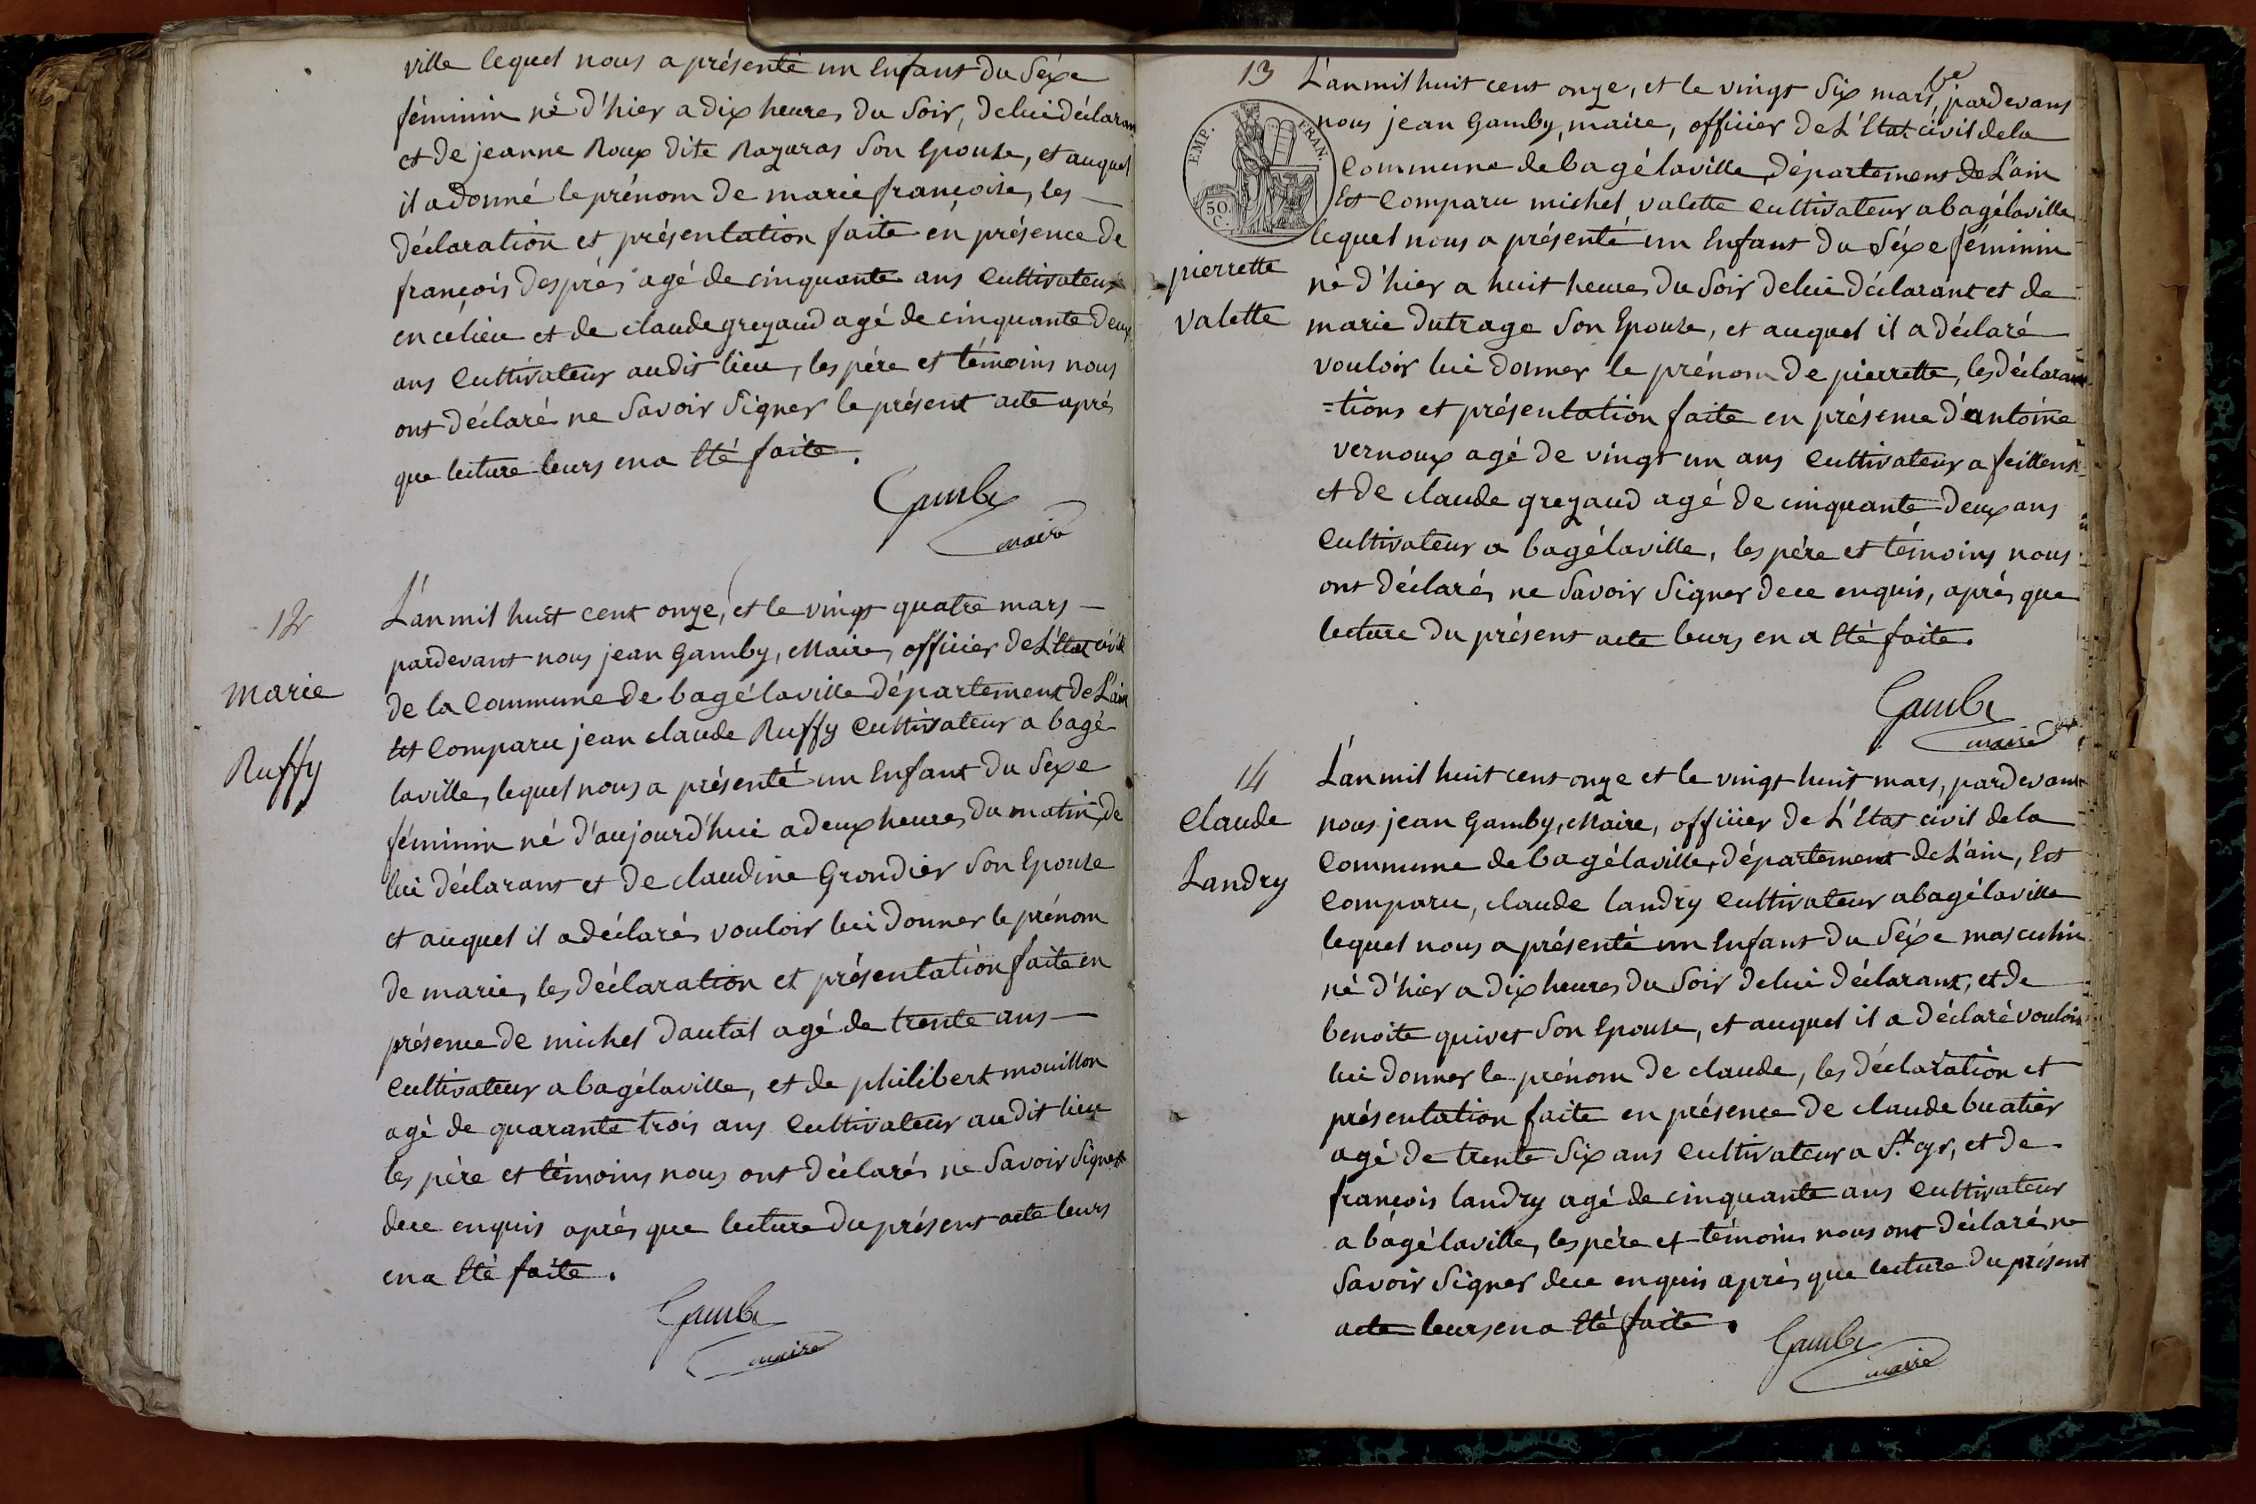 ville lequel nous a présenté un Enfant du Séxe
féminin né d'hier a dix heures du Soir, de lui déclarant
et de jeanne Roux dite Razuras Son Epouse, et auquel
il a donné le prénom de marie françoise, les
déclaration et présentation faite en présence de
françois Desprès agé de cinquante ans Cultivateur
en ce lieu et de claude greyaud agé de cinquante deux
ans Cultivateur au dit lieu, les père et témoins nous
ont déclaré ne Savoir Signer le présent acte après
que lecture leurs en a Eté faite.
Gamby
maire
12
marie
Ruffy
L'an mil huit cent onze, et le vingt quatre mars
pardevant nous jean Gamby, Maire, officier de L'Etat civil
de la Commune de bagé laville département de L'ain
Est Comparu jean claude Ruffy Cultivateur a bagé
laville, lequel nous a présenté un Enfant du Sexe
féminin né d'aujourd'hui a deux heures du matin, de
lui déclarant et de claudine Grondier Son Epouse
et auquel il a déclarés vouloir lui donner le prénom
de marie, les déclaration et présentation faite en
présence de michel Dautal agé de trente ans
Cultivateur a bagé laville, et de philibert mouillon
agé de quarante trois ans Cultivateur au dit lieu
les père et témoins nous ont déclarés ne Savoir Signer
de ce enquis après que lecture du présent acte leurs
en a Eté faite.
Gamby
maire
13
EMP. FRAN.
50.
C.
pierrette
valette
L'an mil huit cent onze, et le vingt Six mars, pardevant
nous jean Gamby, maire, officier de L'Etat civil de la
Commune de bagé laville, département de L'ain
Est Comparu michel valette Cultivateur a bagé laville
lequel nous a présenté un Enfant du Séxe féminin
né d'hier a huit heures du Soir de lui déclarant et de
marie dutrage Son Epouse, et auquel il a déclaré
vouloir lui donner le prénom de pierrette, les déclara
=tions et présentation faite en présence d'antoine
vernoux agé de vingt un ans Cultivateur a feillens
et de claude greyaud agé de cinquante deux ans
Cultivateur a bagé laville, les père et témoins nous
ont déclarés ne Savoir Signer de ce enquis, après que
lecture du présent acte leurs en a Eté faite.
Gamby
maire
14
Claude
Landry
L'an mil huit cent onze et le vingt huit mars, pardevant
nous jean Gamby, Maire, officier de L'Etat civil de la
Commune de bagé laville, département de L'ain, Est
Comparu, claude landry Cultivateur a bagé laville
lequel nous a présenté un Enfant du Séxe masculin
né d'hier a dix heures du Soir de lui déclarant, et de
benoite quivet Son Epouse, et auquel il a déclaré vouloir
lui donner le prénom de claude, les déclaration et
présentation faite en présence de claude buatier
agé de trente Six ans Cultivateur a St. cyr, et de
françois landry agé de cinquante ans Cultivateur
a bagé laville, les père et témoins nous ont déclarés ne
Savoir Signer de ce enquis après que lecture du présent
acte leurs en a Eté faite.
Gamby
maire